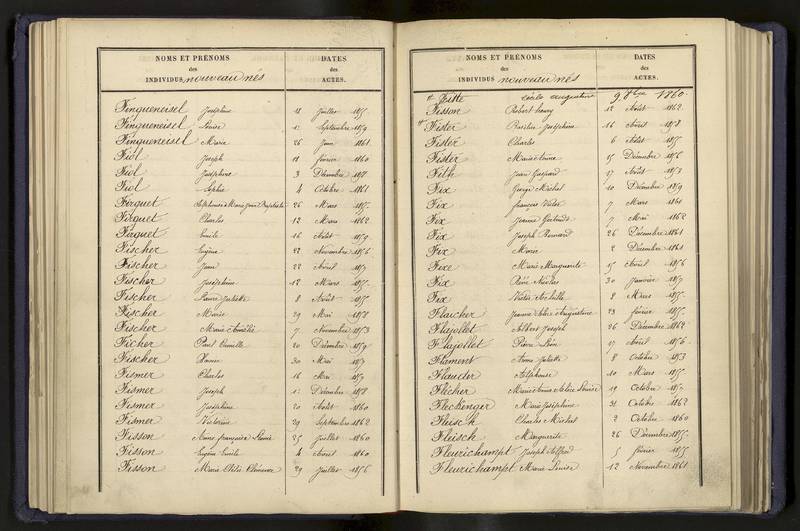 NOMS ET PRÉNOMS
des
INDIVIDUS nouveau nés
DATES
des
ACTES.
Finqueneisel Joséphine 11 Juillet
Finqueneisel Louise Septembre 1859
Finqueneisel Marie 26 Juin 1861
Fiol Joseph 11 février 1860
Fiol Joséphine 3 Décembre
Fiol Sophie 4 Octobre 1861
Firquet Marie Jean Baptiste 26 Mars
Firquet Charles 12 Mars 1862
Firquet Emile 16 Août 1859
Fischer Eugène 22 Novembre 1856
Fischer Jean 22 Avril
Fischer Joséphine 12 Mars
Fischer Juliette 8 Août
Fischer Marie 29 Mai
Fischer Marie Amélie 7 Novembre 1853
Ficher Paul Camille 20 Décembre 1859
Fischer 30 Mai
Fismer Charles 16 Mai
Fismer Joseph Décembre
Fismer Joséphine 20 Août 1860
Fismer Victorine 29 Septembre 1862
Fisson Anne françoise 25 Juillet 1860
Fisson Eugène Emile 4 Avril 1860
Fisson Marie Clémence 29 Juillet 1856
NOMS ET PRÉNOMS
des
INDIVIDUS nouveau nés
DATES
des
ACTES.
Fitte augustine 9 8bre 1860
Fisson Robert henry 12 Août 1862
Fister Joséphine 16 Avril
Fister Charles 6 Août
Fister Marie Anne 15 Décembre 1856
Fith Jean Gaspard 17 Août 1853
Fix George Michel 10 Décembre 1859
Fix françois Victor 7 Mars
Fix Jeanne Gertrude 7 Mai 1862
Fix Joseph Bernard 26 Décembre 1861
Fix Marie 2 Décembre 1861
Fixe Marie Marguerite 15 Avril 1856
Fix René Nicolas 30 Janvier
Fix Victor Achille 2 Mars
Flaicher Jeanne Augustine 23 février
Flajollet Albert Joseph 26 Décembre 1862
Flajollet Pierre Léon 17 Avril 1856
Flament Anne Juliette 8 Octobre 1853
Flauder Alphonse 10 Mars
Flicher Marie Louise 19 Octobre
Fleckenger Marie Joséphine 31 Octobre 1862
Fleisch Charles Michel 2 Octobre 1860
Fleisch Marguerite 26 Décembre
Fleurichampt Joseph Alfred 5 février
Fleurichampt Marie Louise 12 Novembre 1861